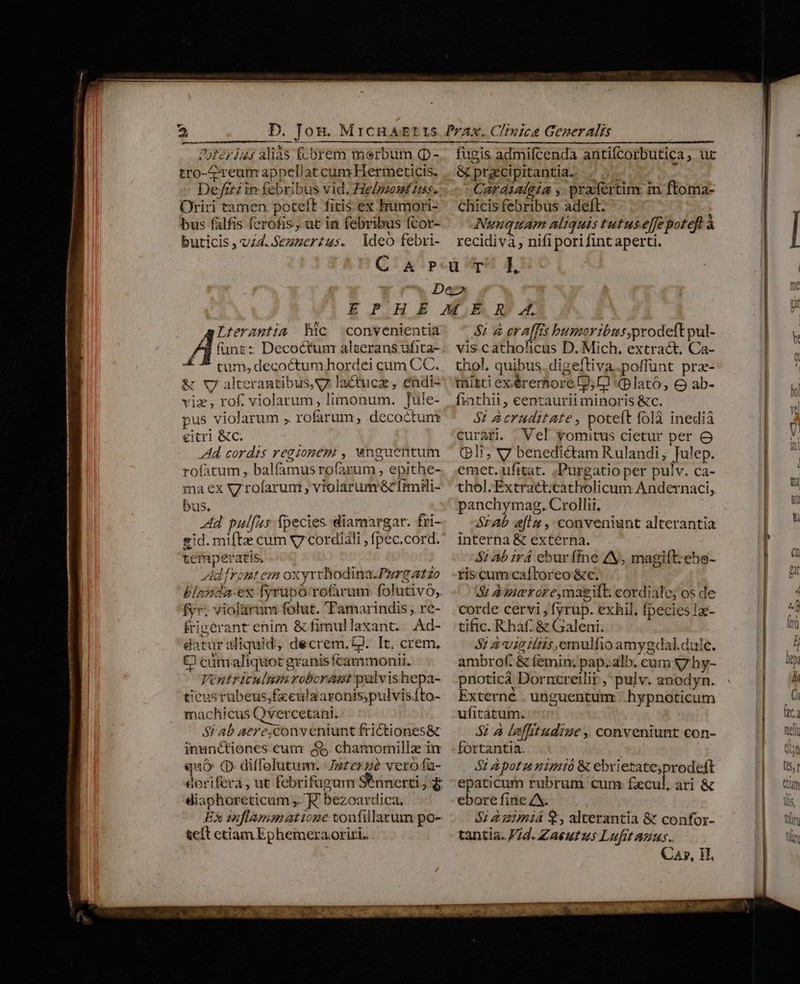 2 D. JOH. MICHAELIS Prax. Clinicæ Generalis
Poterius aliàs febrem morbum ☿-
rro-♀reum appellat cum Hermeticis.
De siti in febribus vid. Helmontius.
Oriri tamen potest sitis ex humori-
bus falsis serosis, ut in febribus scor-
buticis, vid. Sennertus. Ideò febri-
fugis admiscenda antiscorbutica, ut
& præcipitantia.
Cardialgia, præsertim in stoma-
chicis febribus adest.
Nunquam aliquis tutus esse potest à
recidivâ, nisi pori sint aperti.
CAPUT I.
De
EPHEMERA.
ALterantia hîc convenientia
sunt: Decoctum alterans usita-
tum, decoctum hordei cum CC.
& alterantibus, lactucæ, endi-
viæ, ros. violarum, limonum. Jule-
pus violarum, rosarum, decoctum
citri &c.
Ad cordis regionem, unguentum
rosatum, balsamus rosarum, epithe-
ma ex rosarum, violarum & simili-
bus.
Ad pulsus species diamargar. fri-
gid. mistæ cum cordiali, spec. cord.
temperatis.
Ad frontem oxyrrhodina. Purgatio
blanda ex syrupo rosarum solutivo,
syr. violarum solut. Tamarindis, re-
frigerant enim & simul laxant. Ad-
datur aliquid, decrem. It. crem.
cum aliquot granis scammonii.
Ventriculum roborant pulvis hepa-
ticus rubeus, fæcula aronis, pulvis sto-
machicus Qvercetani.
Si ab aere, conveniunt frictiones &
inunctiones cum chamomillæ in
quô dissolutum. Internè verò su-
dorifera, ut febrifugum Sennerti,
diaphoreticum, bezoardica.
Ex inflammatione tonsillarum po-
test etiam Ephemera oriri.
Si à crassis humoribus, prodest pul-
vis catholicus D. Mich. extract. Ca-
thol. quibus digestiva possunt præ-
mitti ex cremore ☿lató, ab-
sinthii, centaurii minoris &c.
Si à cruditate, potest solâ inediâ
curari. Vel vomitus cietur per
☿li, benedictam Rulandi, Julep.
emet. usitat. Purgatio per pulv. ca-
thol. Extract. catholicum Andernaci,
panchymag. Crollii.
Si ab æstu, conveniunt alterantia
interna & externa.
Si ab irâ ebur sine, magist. ebo-
ris cum castoreo &c.
Si à mœrore, magist. cordiale, os de
corde cervi, syrup. exhil. species læ-
tific. Rhas. & Galeni.
Si à vigiliis, emulsio amygdal. dulc.
ambros. & semin. pap. alb. cum hy-
pnoticâ Dorncreilii, pulv. anodyn.
Externè unguentum hypnoticum
usitatum.
Si à lassitudine, conveniunt con-
fortantia.
Si à potu nimió & ebrietate, prodest
epaticum rubrum cum fæcul. ari &
ebore sine.
Si à nimiâ ♀, alterantia & confor-
tantia. Vid. Zacutus Lusitanus.
CAP. II.